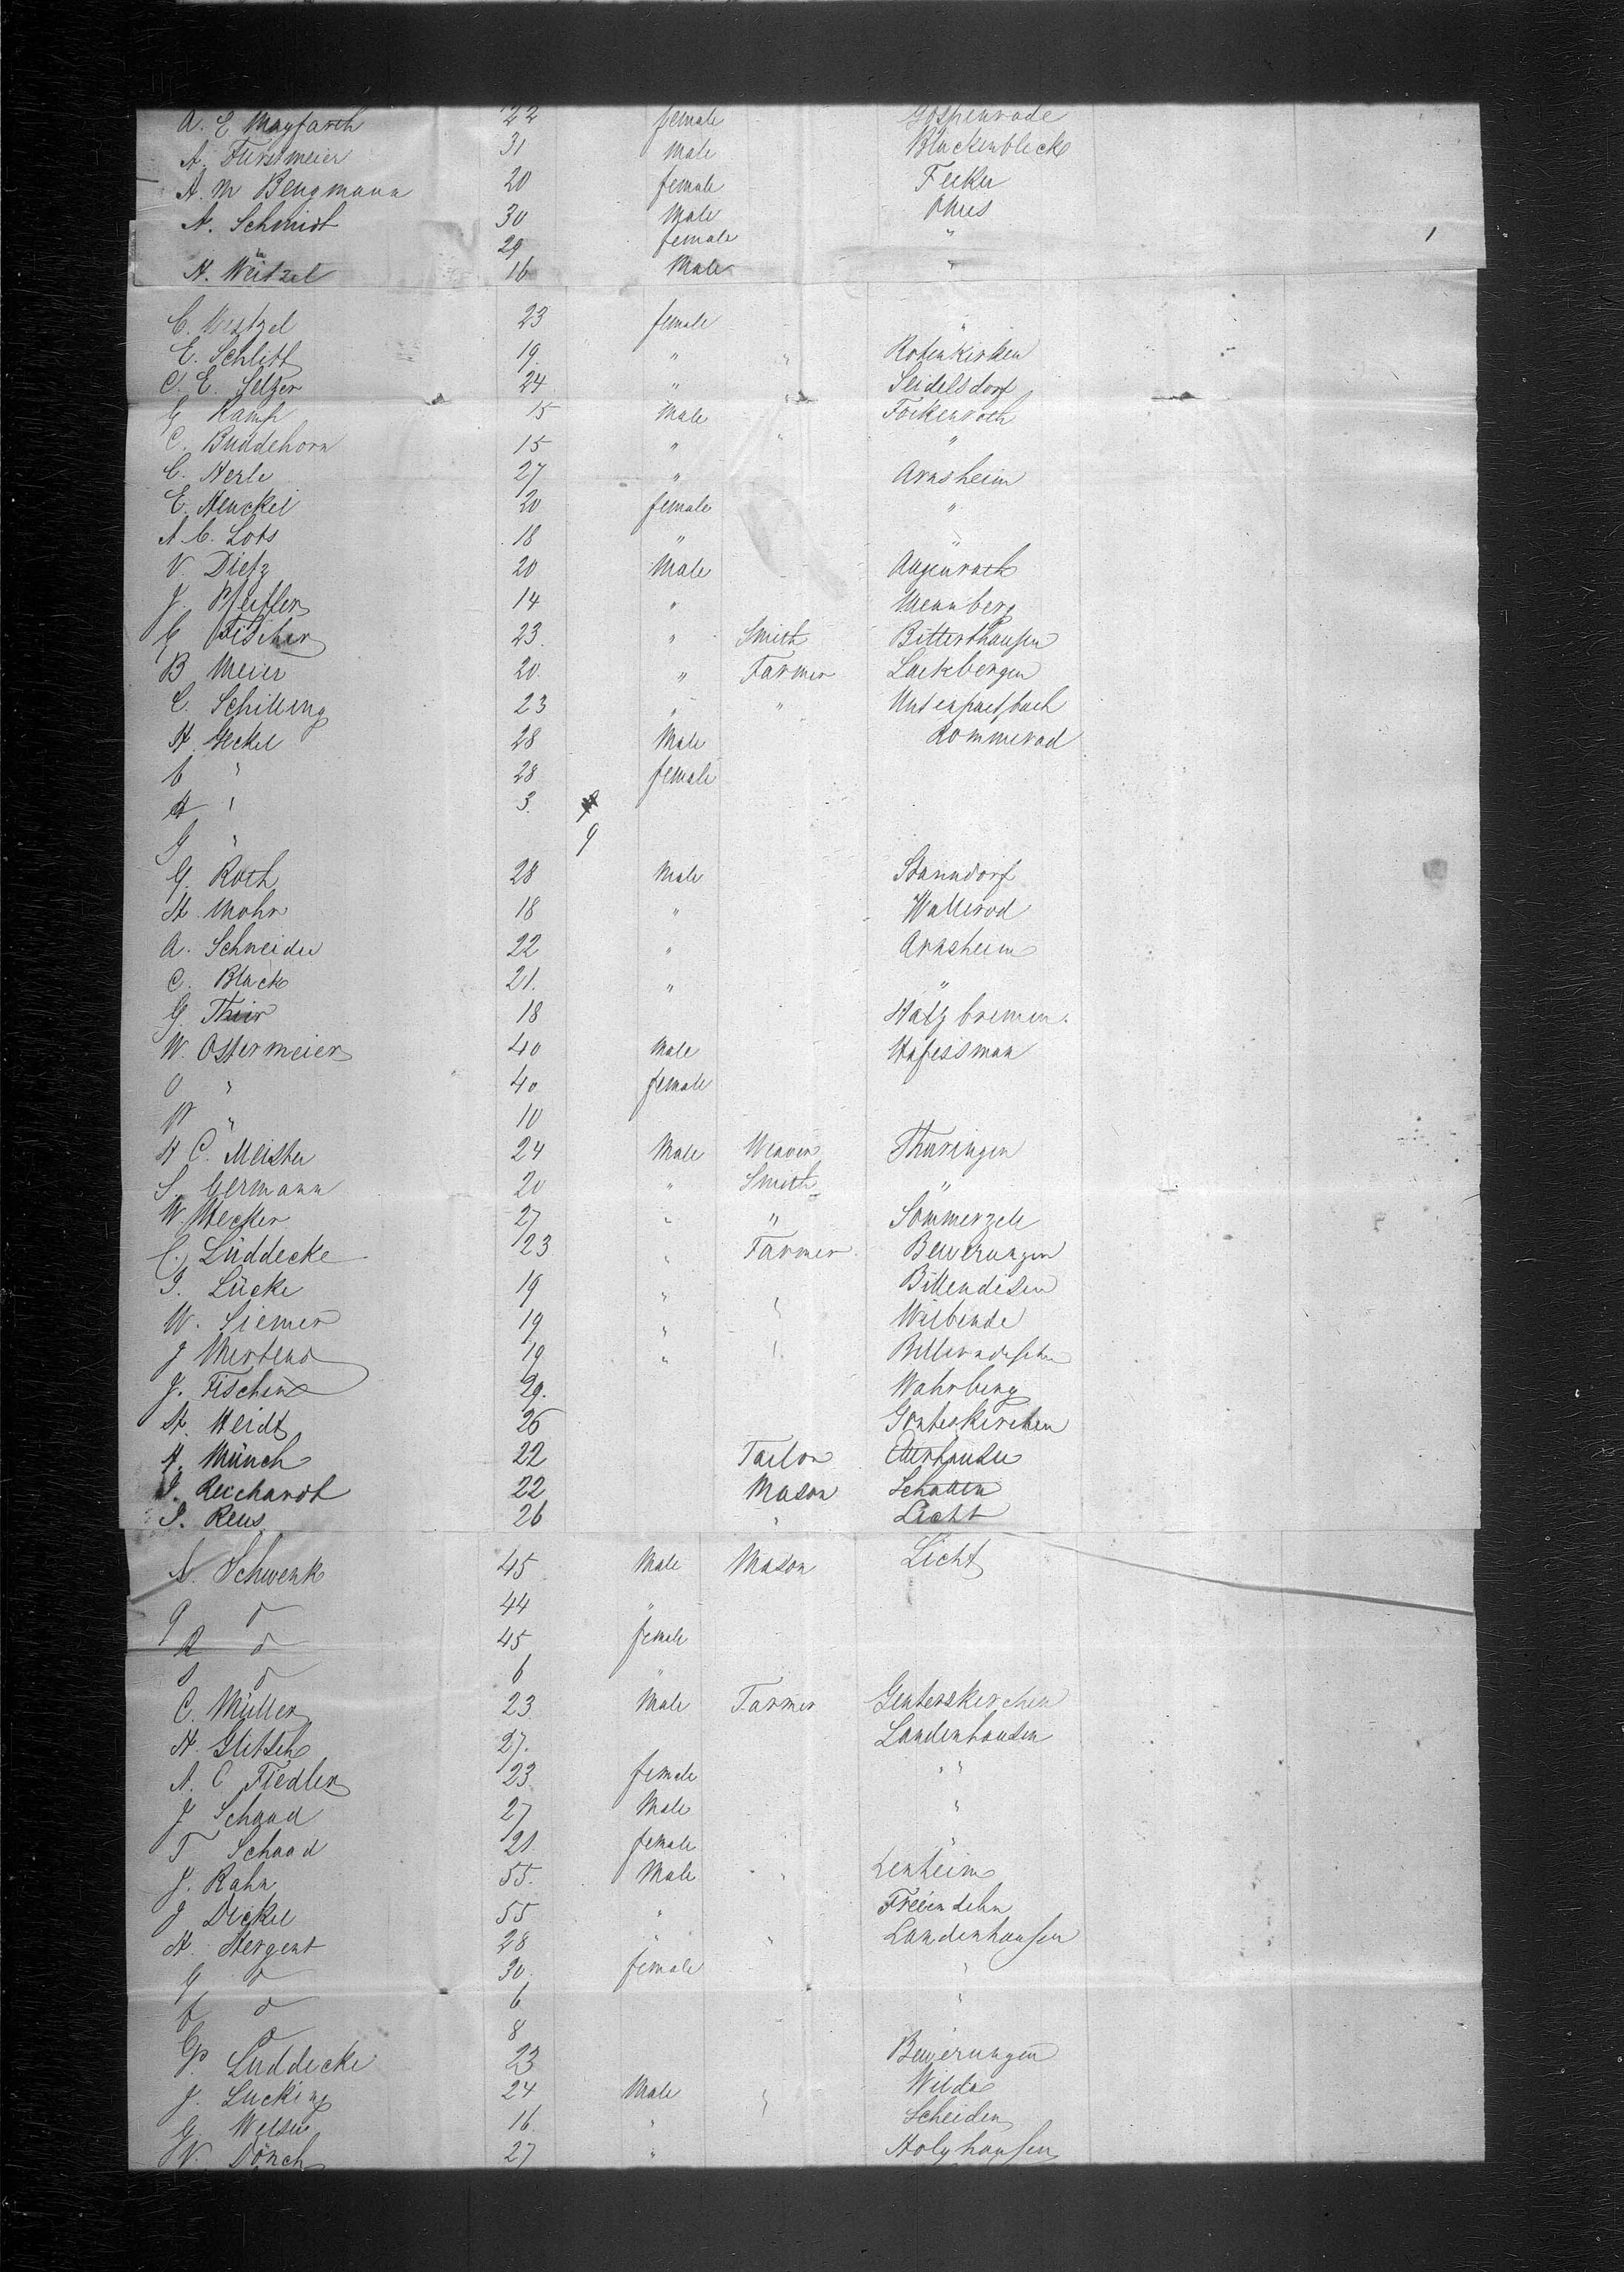 A. E Mayfarth 22 female Gospenrode
A. Furstmeier 31 Male Blackenbleck
A. M Bengmann 20 female Fecker
A. Schmidt 30 Male Ohus
29 female "
H. Weitzel 16 Male "
C. Weitzel 23 female "
E. Schlitt 19 " " Rotenkirken
C. E. Selzer 24 " Seidelsdorf
G Kamp 15 Male Fockenroth
C. Buddehorn 15 " " "
C. Herle 27 " Arnsheim
E. Henckel 20 female "
A. C. Lots 18 " "
V. Dietz 20 Male
J. Pfeiffer 14 "
C Fischer 23 " Smith Bitterthausen
B Meier 20 " Farmer Lackbergen
C. Schilling 23 " "
H Heckel 28 Male Rommerod
C " 28 female
H " 3
G " 9
G. Roth 28 Male Stanndorf
H. Mohr 18 " Wallerod
A. Schneider 22 " Arnsheim
C. Black 21. " "
G. Thier 18 Hatzbremen.
W. Ostermeier 40 Male
" 40 female
W " 10
H C. Meister 24 Male Weaver Thuringen
S. Germann 20 " Smith "
W. Hecker 27 " " Sommerzele
C. Lüddecke 23 " Farmer Beverungen
J. Lücke 19 " " Billendesen
W. Siemer 19 " " Wilbende
J Mertens 19 " "
J. Fischer 29. Wahrberg
H. Heidt 26 Gonterskirchen
H. Münch 22 Tailor
J. Reichardt 22 Mason Schotten
S. Reus 26 " Licht
A. Schwenk 45 Male Mason Licht
d 44 "
R d 45 female
S d 6 "
C. Müller 23 Male Farmer Genterskirchen
H. Glitsch 27. Landenhausen
A. C Fiedler 23 female "
J Schaad 27 Male "
T Schaad 21 female "
J. Rahn 55. Male " Lenheim
J Dickel 55 " Freiendehn
H. Hergent 28 " " Landenhausen
G d 30 female "
d 6 "
d 8
Luddecke 23 Beverungen
J. Lucking 24 Male " Wilda
G. Welsin 16 " Scheiden
N. Dönch 27 " Holyhausen